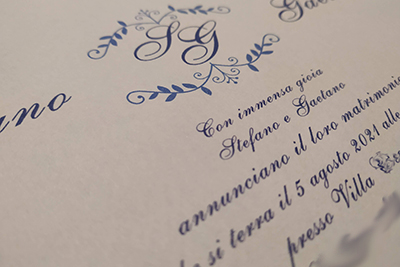 SG
Con immensa gioia
Stefano e Gaetano
annunciano il loro matrimonio
si terra il 5 agosto 2021 alle
presso Villa